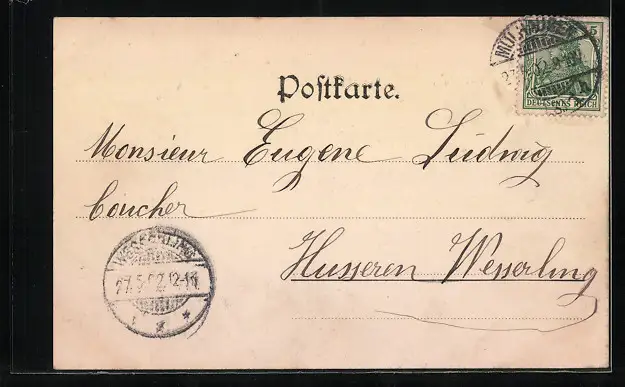 MÜLHAUSEN
5
DEUTSCHES REICH
Postkarte.
Monsieur Eugene Ludwig
Coucher
Husseren Wesserling
WESSERLING
27.5.02.12-1N